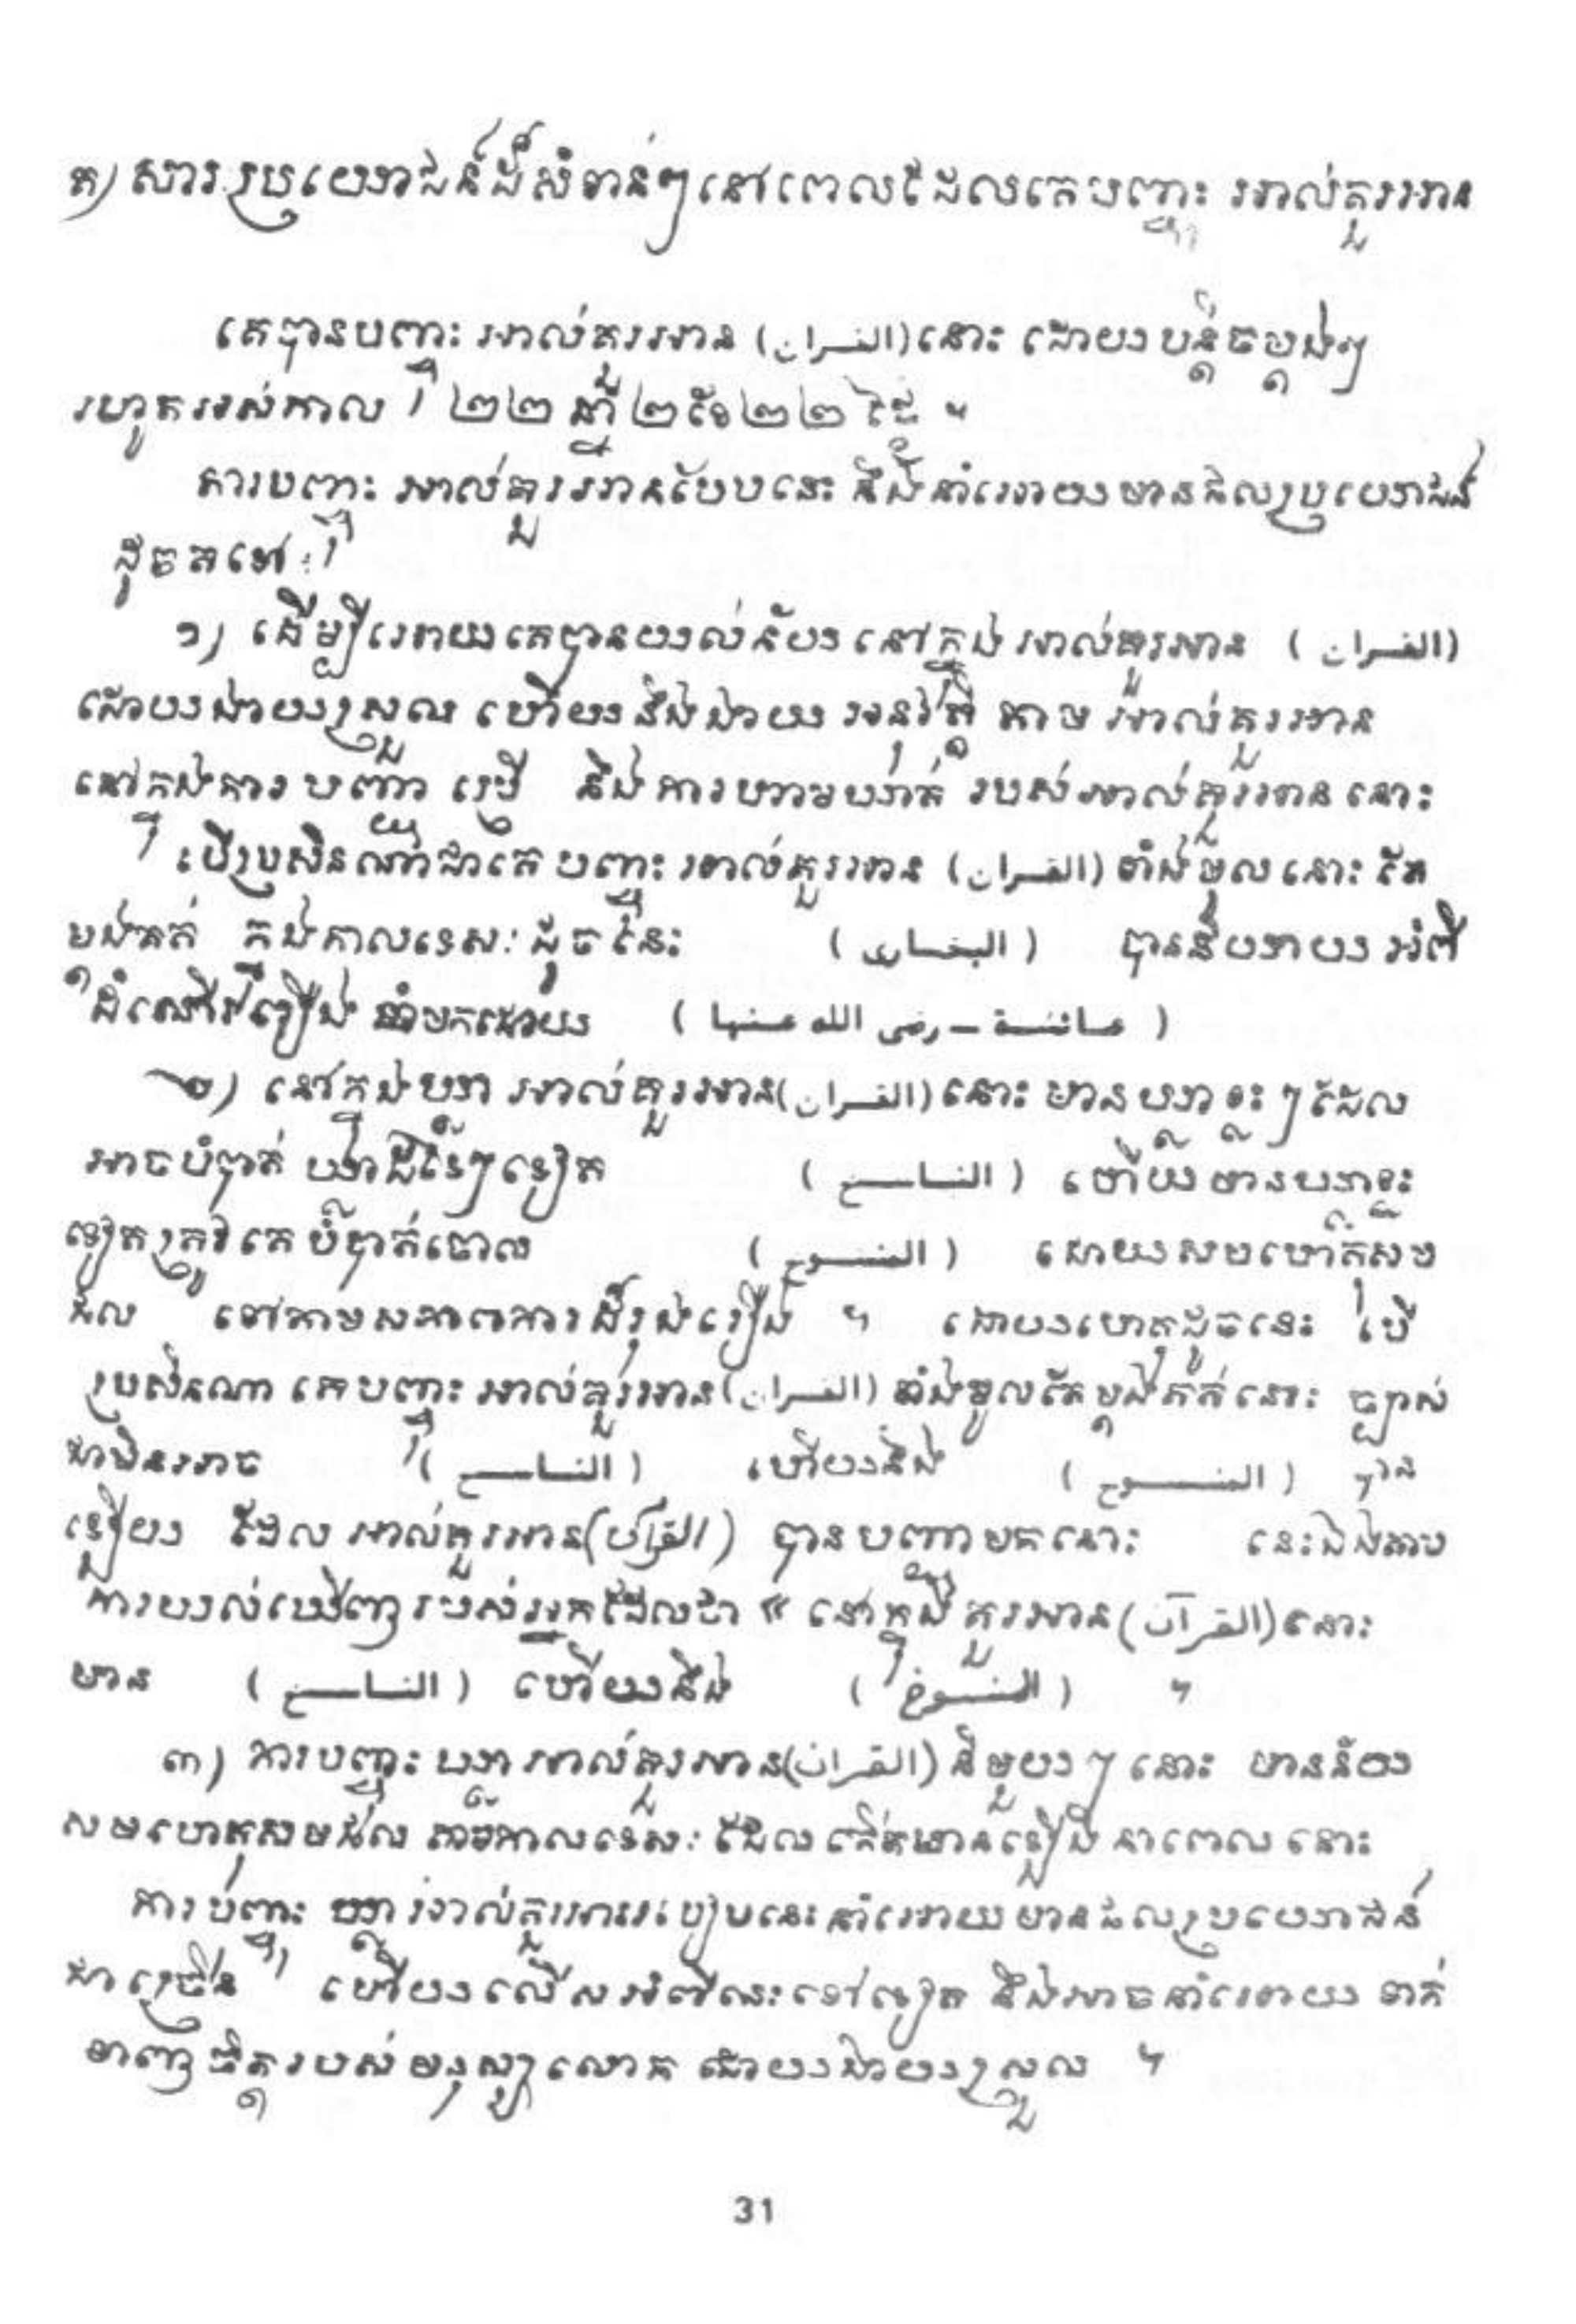 ត) សារប្រយោជន៍ដ៏សំខាន់ៗនៅពេលដែលគេបញ្ចុះ អាល់គួរអាន
គេបានបញ្ចុះ អាល់គួរអាន (القران) នោះ ដោយបន្តិចម្តងៗ
រហូតអស់កាល ២២ ឆ្នាំ ២ ខែ ២២ ថ្ងៃ ។
ការបញ្ចុះ អាល់គួរអានបែបនេះ នឹងនាំអោយមានផលប្រយោជន៍
ដូចតទៅ :
១) ដើម្បីអោយគេបានយល់ន័យ នៅក្នុង អាល់គួរអាន (القران)
ដោយងាយស្រួល ហើយនឹងងាយ អនុវត្តិ តាម អាល់គួរអាន
នៅក្នុងការ បញ្ជា ប្រើ និងការហាមឃាត់ របស់អាល់គួរអាន នោះ
បើប្រសិនណាជាគេ បញ្ចុះ អាល់គួរអាន (القران) ទាំងមូល នោះ តែ
ម្តងគត់ ក្នុងកាលទេសៈ ដូច្នេះ (البخاري) បាននិយាយ អំពី
ដំណើររឿង នាំមកដោយ (عائشة – رضي الله عنها)
២) នៅក្នុងឃ្លា អាល់គួរអាន (القران) នោះ មានឃ្លាខ្លះ ៗ ដែល
អាចបំបាត់ ឃ្លាដទៃៗ ទៀត (الناسخ) ហើយមានឃ្លាខ្លះ
ទៀតត្រូវគេបំបាត់ចោល (المنسوخ) ដោយសមហេតុសម
ផល ទៅតាមសភាពការដ៏រុងរឿង ។ ដោយហេតុដូចនេះ បើ
ប្រសិនណា គេបញ្ចុះ អាល់គួរអាន (القران) ទាំងមូលតែម្តងគត់នោះ ច្បាស់
ជាមិនអាច (الناسخ) ហើយនឹង (المنسوخ) បាន
ឡើយ ដែល អាល់គួរអាន (القرآن) បានបញ្ជាមកនោះ នេះឯងតាម
ការយល់ឃើញរបស់អ្នកដែលថា « នៅក្នុងគួរអាន (القرآن) នោះ
មាន (الناسخ) ហើយនឹង (المنسوخ) ។
៣) ការបញ្ចុះ ឃ្លា អាល់គួរអាន (القران) និមួយៗ នោះ មានន័យ
សមហេតុសមផល តាមកាលទេសៈ ដែល កើតមានឡើង នាពេល នោះ
ការបញ្ចុះ ឃ្លា អាល់គួរអានរបៀបនេះ នាំអោយមានផលប្រយោជន៍
ជាច្រើន ហើយលើសអំពីនេះទៅទៀត និងអាចនាំអោយ ទាក់
ទាញចិត្តរបស់មនុស្សលោក ដោយងាយស្រួល ។
31